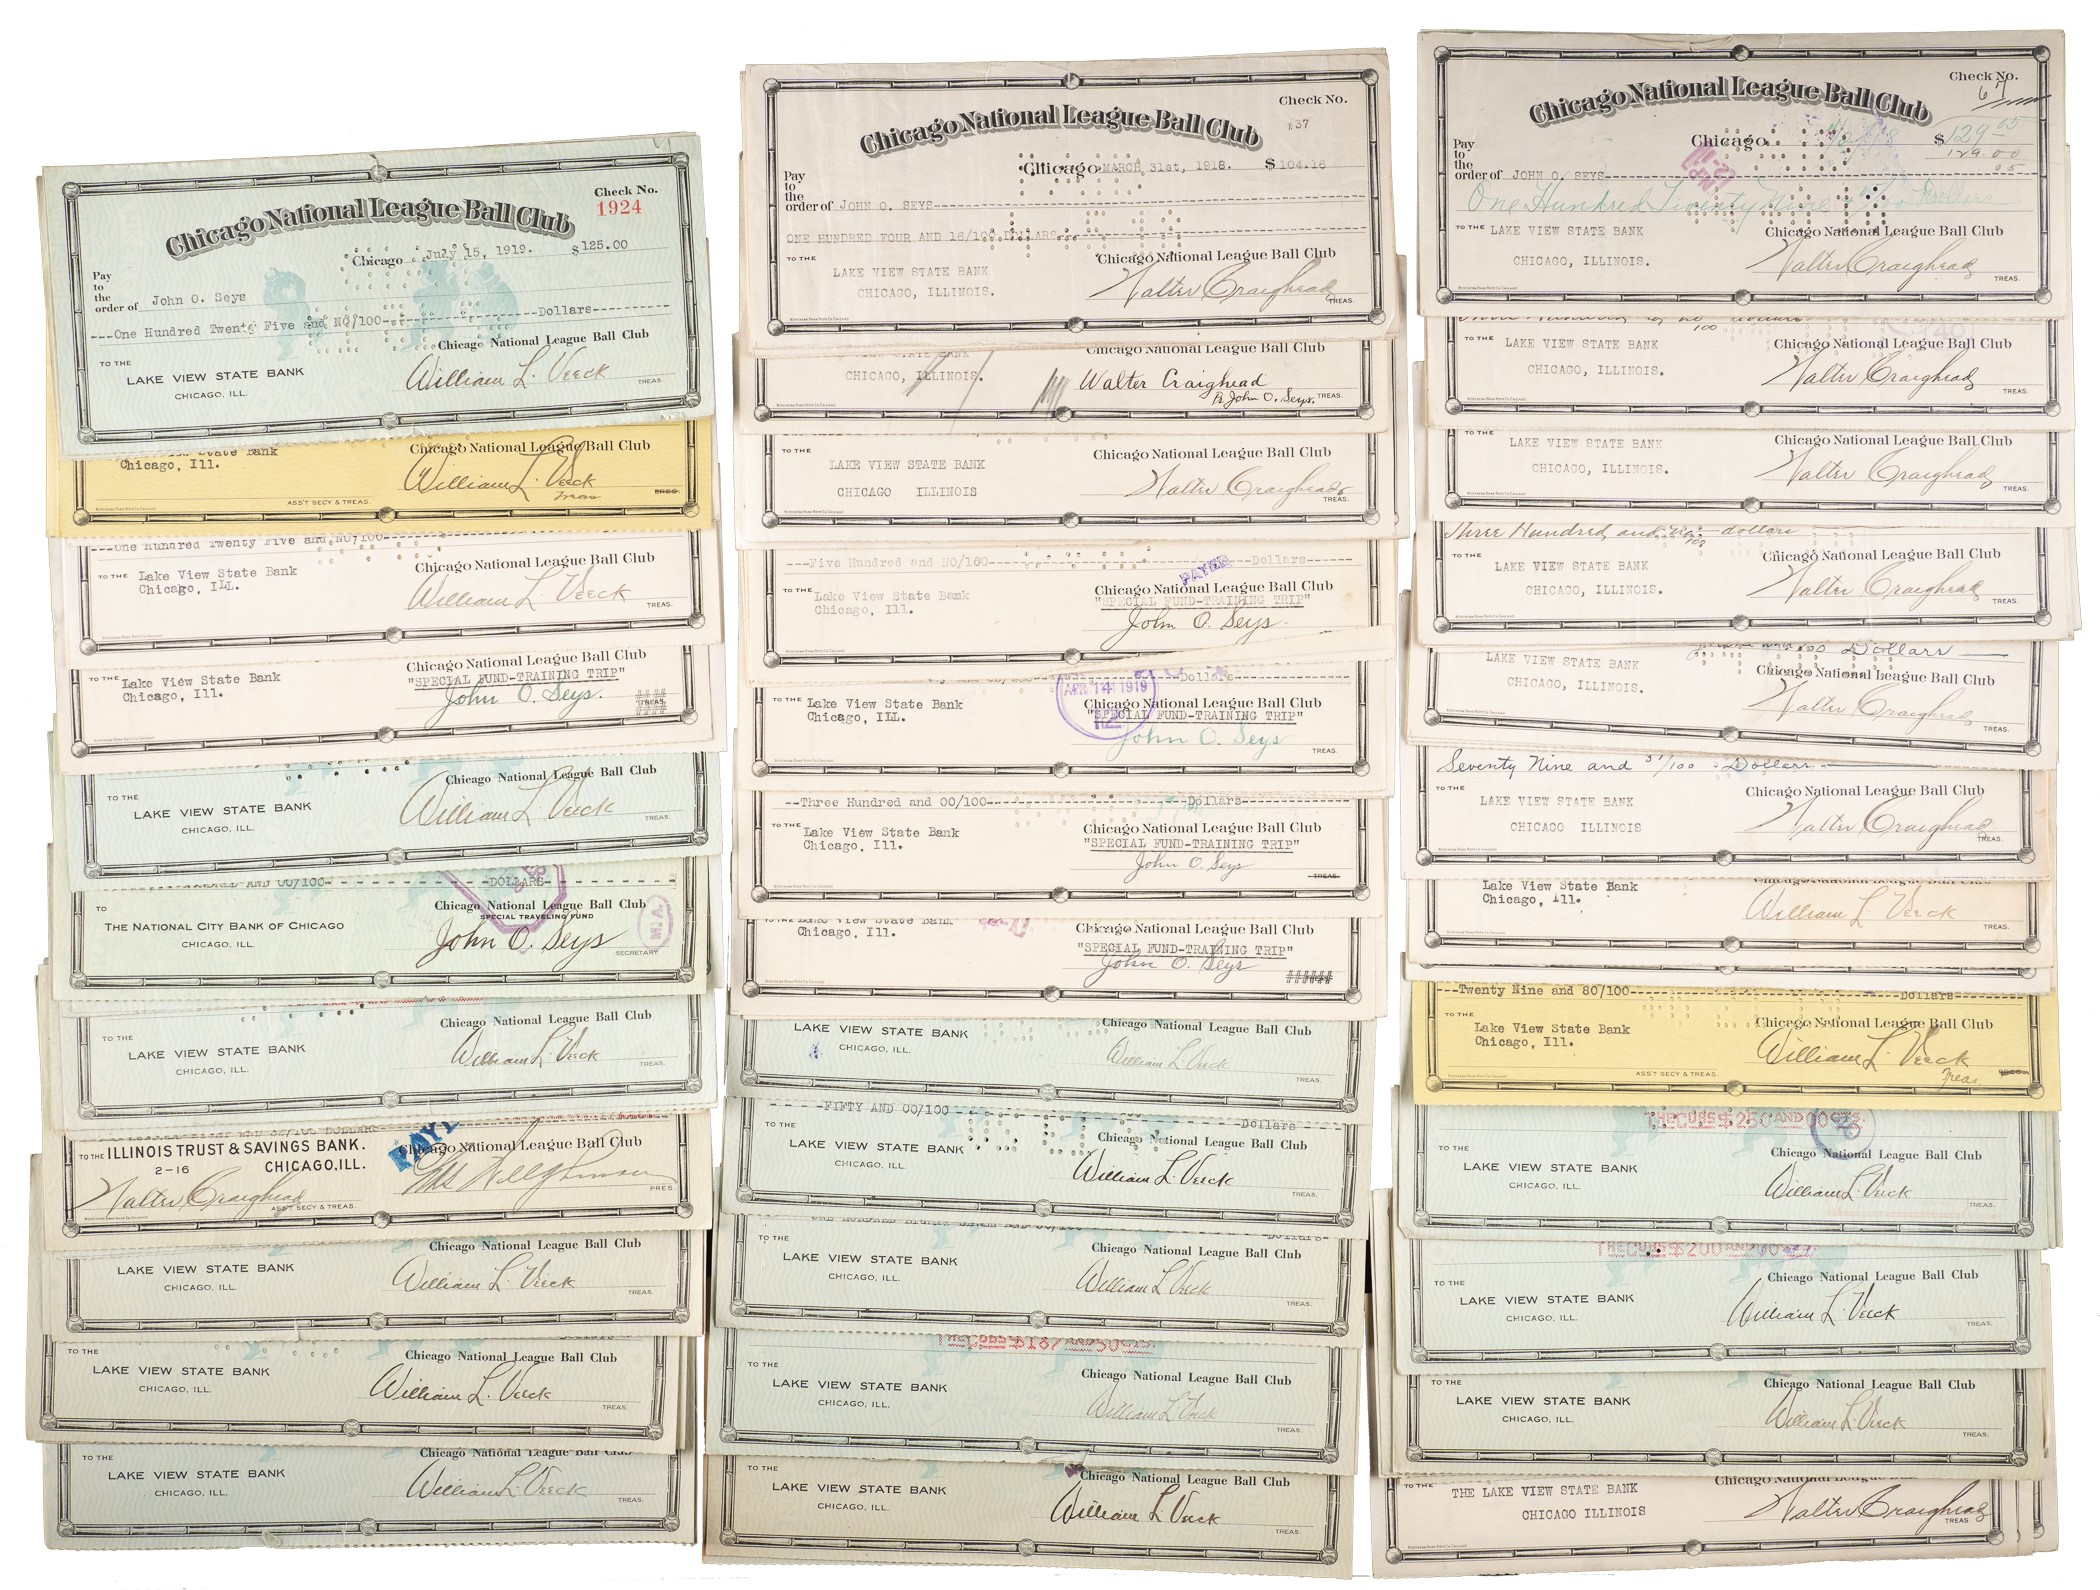 Chicago National League Ball Club
Check No.
1924
Chicago July 15, 1919. $125.00
Pay
to
the
order of John O. Seys
---One Hundred Twenty Five and NO/100---Dollars---
Chicago National League Ball Club
TO THE
LAKE VIEW STATE BANK
CHICAGO, ILL.
William L. Veeck
TREAS.
State Bank
Chicago, Ill.
Chicago National League Ball Club
William L. Veeck
Treas
ASS'T SECY & TREAS.
PRES.
---One Hundred Twenty Five and NO/100---
Chicago National League Ball Club
TO THE Lake View State Bank
Chicago, Ill.
William L. Veeck
TREAS.
Chicago National League Ball Club
TO THE Lake View State Bank
Chicago, Ill.
"SPECIAL FUND-TRAINING TRIP"
John O. Seys.
TREAS.
Chicago National League Ball Club
TO THE
LAKE VIEW STATE BANK
CHICAGO, ILL.
William L. Veeck
TREAS.
AND 00/100- - - DOLLARS- - -
Chicago National League Ball Club
SPECIAL TRAVELING FUND
TO
THE NATIONAL CITY BANK OF CHICAGO
CHICAGO, ILL.
John O. Seys
SECRETARY
M.A.
Chicago National League Ball Club
TO THE
LAKE VIEW STATE BANK
CHICAGO, ILL.
William L. Veeck
TREAS.
DOLLARS
TO THE ILLINOIS TRUST & SAVINGS BANK.
2-16 CHICAGO, ILL.
Chicago National League Ball Club
Walter Craighead
ASS'T SECY & TREAS.
PRES
Chicago National League Ball Club
LAKE VIEW STATE BANK
CHICAGO, ILL.
William L. Veeck
TREAS.
Chicago National League Ball Club
TO THE
LAKE VIEW STATE BANK
CHICAGO, ILL.
William L. Veeck
TREAS.
Chicago National League Ball Club
TO THE
LAKE VIEW STATE BANK
CHICAGO, ILL.
William L. Veeck
TREAS.
Chicago National League Ball Club
Check No.
#37
Chicago MARCH 31st, 1918. $104.16
Pay
to
the
order of JOHN O. SEYS---
ONE HUNDRED FOUR AND 16/100 DOLLARS---
TO THE
LAKE VIEW STATE BANK
CHICAGO, ILLINOIS.
Chicago National League Ball Club
Walter Craighead
TREAS.
Chicago National League Ball Club
CHICAGO, ILLINOIS.
Walter Craighead
Pr John O. Seys.
TREAS.
TO THE
LAKE VIEW STATE BANK
CHICAGO ILLINOIS
Chicago National League Ball Club
Walter Craighead
TREAS.
---Five Hundred and NO/100---Dollars---
PAYED
TO THE Lake View State Bank
Chicago, Ill.
Chicago National League Ball Club
"SPECIAL FUND-TRAINING TRIP"
John O. Seys.
Dollars---
APR 14 1919
TO THE Lake View State Bank
Chicago, Ill.
Chicago National League Ball Club
"SPECIAL FUND-TRAINING TRIP"
John O. Seys
TREAS.
--Three Hundred and 00/100---Dollars---
TO THE Lake View State Bank
Chicago, Ill.
Chicago National League Ball Club
"SPECIAL FUND-TRAINING TRIP"
John O. Seys
TREAS.
TO THE Lake View State Bank
Chicago, Ill.
Chicago National League Ball Club
"SPECIAL FUND-TRAINING TRIP"
John O. Seys
######
LAKE VIEW STATE BANK
CHICAGO, ILL.
Chicago National League Ball Club
William L. Veeck
TREAS.
FIFTY AND 00/100 - - - Dollars - -
TO THE
LAKE VIEW STATE BANK
CHICAGO, ILL.
Chicago National League Ball Club
William L. Veeck
TREAS.
Dollars-
TO THE
LAKE VIEW STATE BANK
CHICAGO, ILL.
Chicago National League Ball Club
William L. Veeck
TREAS.
THE CUBS $187 AND 50 CTS.
TO THE
LAKE VIEW STATE BANK
CHICAGO, ILL.
Chicago National League Ball Club
William L. Veeck
TREAS.
TO THE
LAKE VIEW STATE BANK
CHICAGO, ILL.
Chicago National League Ball Club
William L. Veeck
TREAS.
Chicago National League Ball Club
Check No.
67
Chicago $129 05
129.00
05
Pay
to
the
order of JOHN O. SEYS---
One Hundred Twenty Nine Dollars
TO THE LAKE VIEW STATE BANK
CHICAGO, ILLINOIS.
Chicago National League Ball Club
Walter Craighead
TREAS.
TO THE
LAKE VIEW STATE BANK
CHICAGO, ILLINOIS.
Chicago National League Ball Club
Walter Craighead
TREAS.
TO THE
LAKE VIEW STATE BANK
CHICAGO, ILLINOIS.
Chicago National League Ball Club
Walter Craighead
TREAS.
Three Hundred and no/100 dollars
TO THE
LAKE VIEW STATE BANK
CHICAGO, ILLINOIS.
Chicago National League Ball Club
Walter Craighead
TREAS.
Dollars
LAKE VIEW STATE BANK
CHICAGO, ILLINOIS.
Chicago National League Ball Club
Walter Craighead
TREAS.
Seventy Nine and 51/100 - Dollars
TO THE
LAKE VIEW STATE BANK
CHICAGO ILLINOIS
Chicago National League Ball Club
Walter Craighead
TREAS.
Lake View State Bank
Chicago, Ill.
William L. Veeck
TREAS.
---Twenty Nine and 80/100---Dollars---
TO THE
Lake View State Bank
Chicago, Ill.
Chicago National League Ball Club
William L. Veeck
Treas.
ASS'T SECY & TREAS.
PRES.
THE CUBS $250 AND 00 CTS.
TO THE
LAKE VIEW STATE BANK
CHICAGO, ILL.
Chicago National League Ball Club
William L. Veeck
TREAS.
THE CUBS $200 AND 00 CTS.
TO THE
LAKE VIEW STATE BANK
CHICAGO, ILL.
Chicago National League Ball Club
William L. Veeck
TREAS.
TO THE
LAKE VIEW STATE BANK
CHICAGO, ILL.
Chicago National League Ball Club
William L. Veeck
TREAS.
TO THE THE LAKE VIEW STATE BANK
CHICAGO ILLINOIS
Chicago National League Ball Club
Walter Craighead
TREAS.